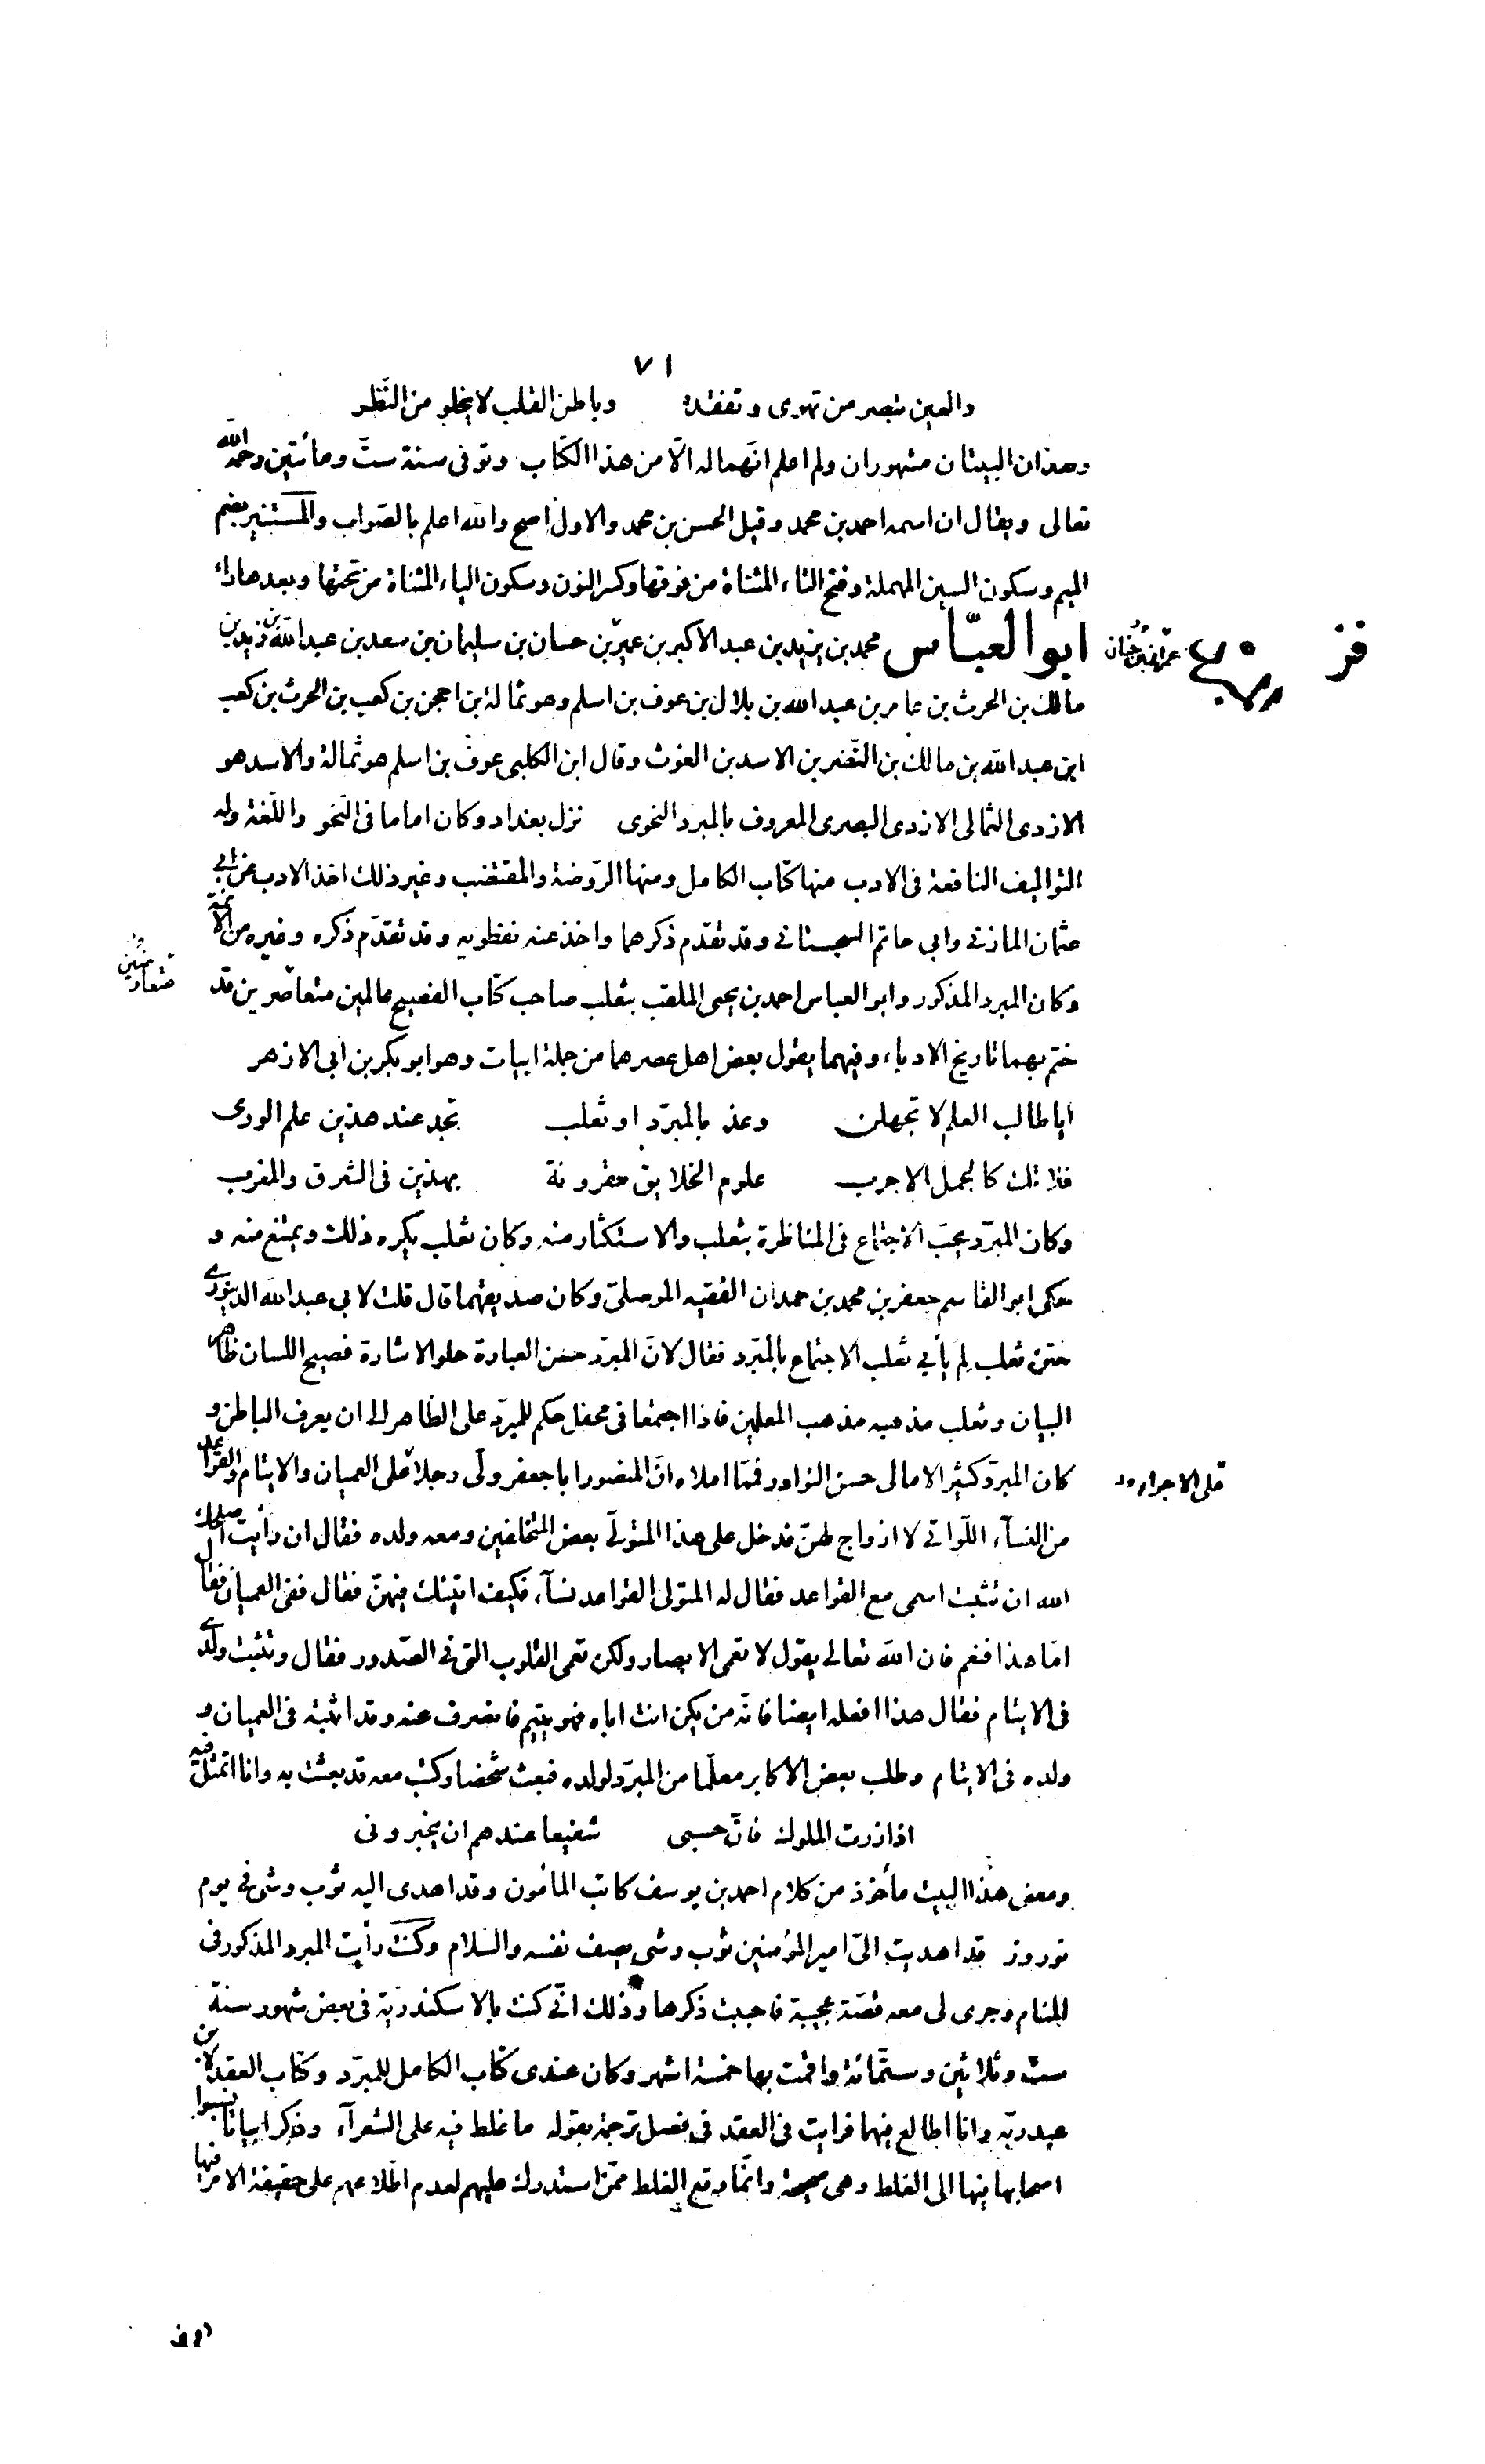 ٧١
والعين تبصر من تهوى وتفقده وباطن القلب لا يخلو من النّظر
وهذان البيتان مشهوران ولم اعلم انّهما له الّا من هذا الكتاب وتوفى سنة ستّ ومأتين رحمه اللّه
تعالى ويقال ان اسمه احمد بن محمد وقيل الحسن بن محمد والاول اصح واللّه اعلم بالصّواب والمستنير بضم
الميم وسكون السين المهملة وفتح التاء المثناة من فوقها وكسر النون وسكون الياء المثناة من تحتها وبعدها راء
ابو العبّاس محمد بن يزيد بن عبد الاكبر بن عمير بن حسان بن سليمان بن سعد بن عبد اللّه بن زيد بن
مالك بن الحرث بن عامر بن عبد الله بن بلال بن عوف بن اسلم وهو ثمالة بن احجن بن كعب بن الحرث بن كعب
ابن عبد اللّه بن مالك بن النّضر بن الاسد بن الغوث وقال ابن الكلبى عوف بن اسلم هو ثمالة والاسد هو
الازدى الثمالى الازدى البصرى المعروف بالمبرد النحوى نزل بغداد وكان اماما فى النّحو واللّغة وله
التواليف النافعة فى الادب منها كتاب الكامل ومنها الرّوضة والمقتضب وغير ذلك اخذ الادب عن ابى
عثمان المازنى وابى حاتم السجستانى وقد تقدّم ذكرهما واخذ عنه نفطويه وقد تقدّم ذكره وغيره من الائمّة
وكان المبرد المذكور وابو العباس احمد بن يحيى الملقب بثعلب صاحب كتاب الفصيح عالمين متعاصرين قد
ختم بهما تاريخ الادباء وفيهما يقول بعض اهل عصرهما من جملة ابيات وهو ابو بكر بن ابى الازهر
ايا طالب العلم لا تجهلن وعذ بالمبرّد او ثعلب تجد عند هذين علم الورى
فلا تك كالجمل الاجرب علوم الخلايق مقرونة بهذين فى الشرق والمغرب
وكان المبرّد يحبّ الاجتماع فى المناظرة بثعلب والاستكثار منه وكان ثعلب يكره ذلك ويمتنع منه و
حكى ابو القاسم جعفر بن محمد بن حمدان الفقيه الموصلىّ وكان صديقهما قال قلت لابى عبد اللّه الدينورى
ختن ثعلب لِمَ يأبى ثعلب الاجتماع بالمبّرد فقال لانّ المبرّد حسن العبارة حلو الاشارة فصيح اللسان ظاهر
البيان وثعلب مذهبه مذهب المعلمين فاذا اجتمعا فى محفل حكم للمبرّد على الظّاهر الى ان يعرف الباطن و
كان المبرّد كثير الامالى حسن النوادر فممّا املاه انّ المنصور ابا جعفر ولّى رجلا على العميان والايتام والقواعد
من النسآء اللّواتى لا ازواج لهنّ فدخل على هذا المتولّى بعض المتخلفين ومعه ولده فقال ان رأيت اصلحك
الله ان تثبت اسمى مع القواعد فقال له المتولى القواعد نسآء فكيف اثبتك فيهنّ فقال ففى العميان فقال
امّا هذا فنعم فان اللّه تعالى يقول لا تعمى الابصار ولكن تعمى القلوب التى فى الصّدور فقال وتثبت ولدى
فى الايتام فقال هذا افعله ايضا فانّه من يكن انت اباه فهو يتيم فانصرف عنه وقد اثبته فى العميان و
ولده فى الايتام وطلب بعض الاكابر معلّما من المبرّد لولده فبعث شخصا وكتب معه قد بعثت به وانا اتمثّل فيه
اذا زرت الملوك فانّ حسبى شفيعا عندهم ان يخبرونى
ومعنى هذا البيت مأخوذ من كلام احمد بن يوسف كاتب المأمون وقد اهدى اليه ثوب وشى فى يوم
نوروز قد اهديت الىّ امير المؤمنين ثوب وشى يصف نفسه والسّلام وكنت رأيت المبرد المذكور فى
المنام وجرى لى معه قصّة عجيبة فاحببت ذكرها وذلك انّى كنت بالاسكندريّة فى بعض شهور سنة
ستّ وثلاثين وستّمائة واقمت بها خمسة اشهر وكان عندى كتاب الكامل للمبرّد وكتاب العقد لابن
عبد ربّه وانا اطالع فيهما فرايت فى العقد فى فصل ترجمة بقوله ما غلط فيه على الشعرآء وذكر ابياتا نسبوا
اصحابها فيها الى الغلط وهى صحيحة وانّما وقع الغلط ممّن استدرك عليهم لعدم اطّلاعهم على حقيقة الامر فيها